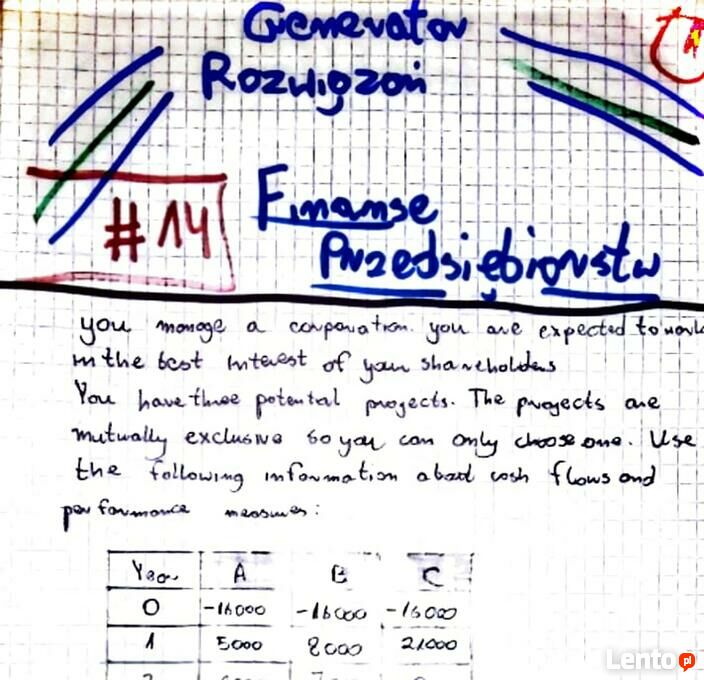 Generator
Rozwiązań
#14
Finanse
Przedsiębiorstw
you manage a corporation. you are expected to work
in the best interest of your shareholders
You have three potential projects. The projects are
mutually exclusive so you can only choose one. Use
the following information about cash flows and
performance measures:
Year A B C
0 -16000 -16000 -16000
1 5000 8000 21000
Lento pl